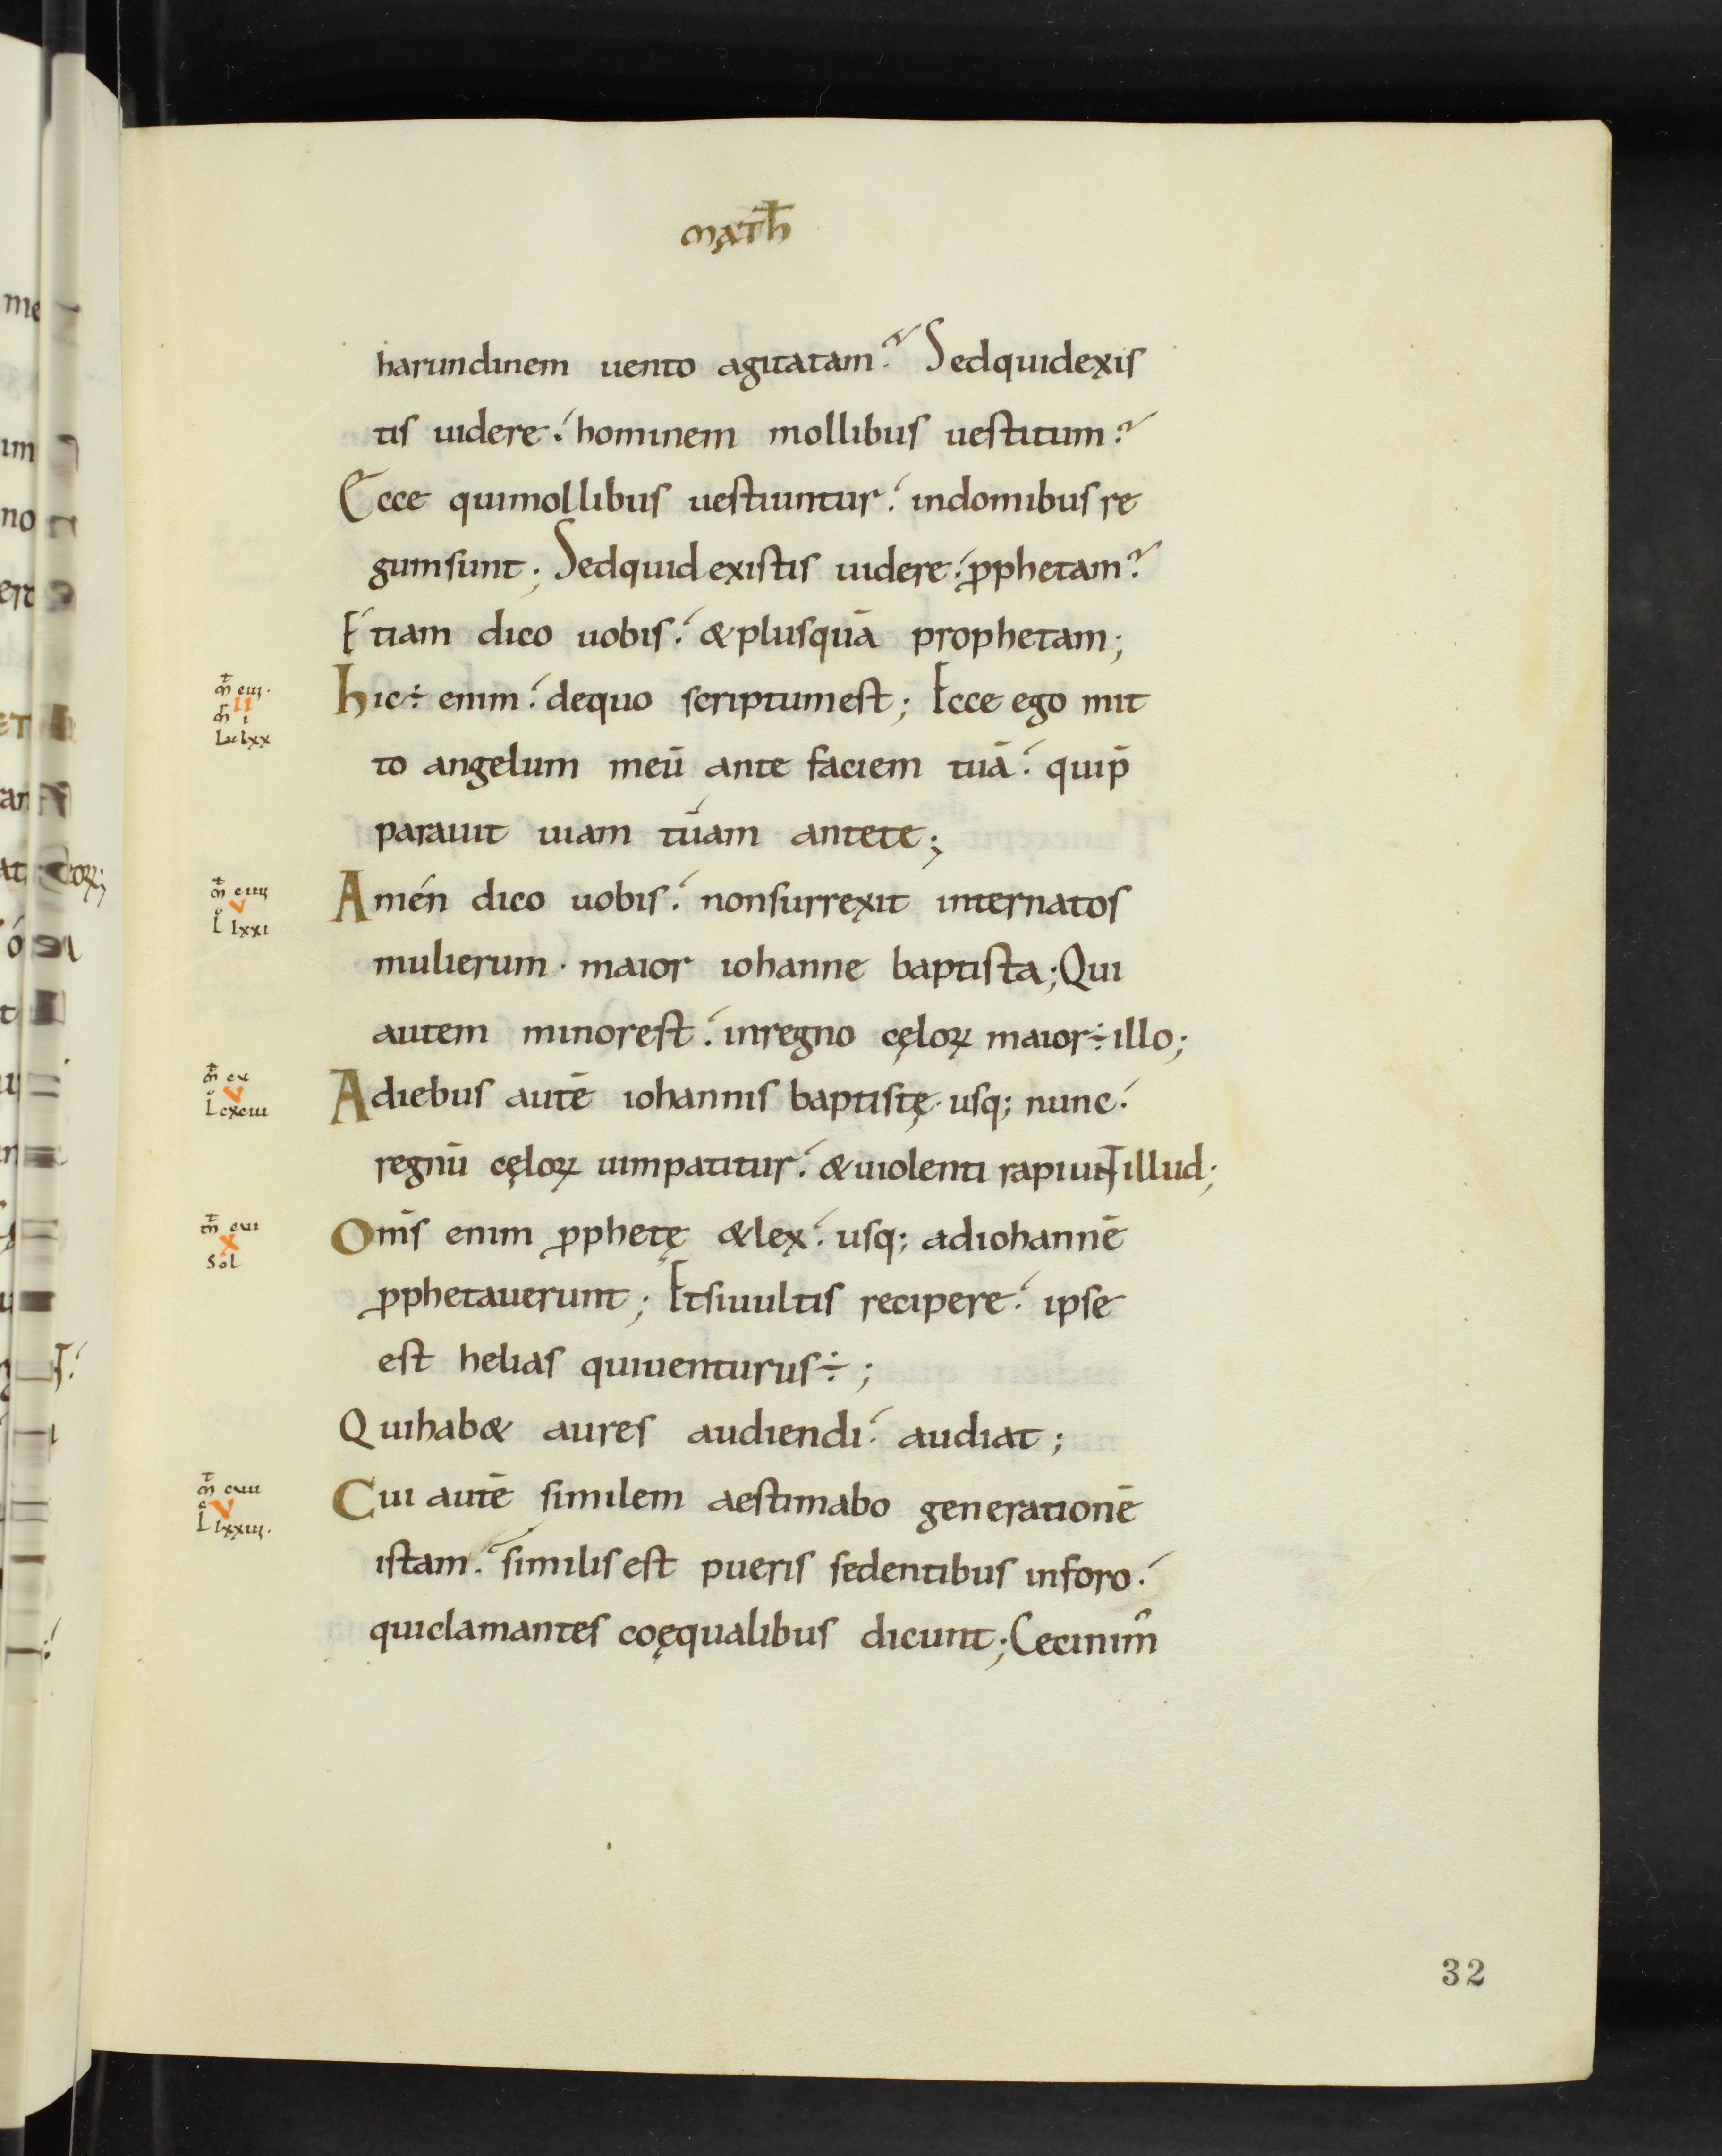 MATH̄
harundinem uento agitatam? Sedquidexis
tis uidere. hominem mollibus uestitum?
Ecce quimollibus uestiuntur. indomibus re
gumsunt; Sedquid existis uidere. ꝓphetam?
Etiam dico uobis. &plusquā prophetam;
Hic÷ enim. dequo scriptumest; Ecce ego mit
to angelum meū ante faciem tuā. quip̄
parauit uiam tuam antete;
Amén dico uobis. nonsurrexit internatos
mulierum. maior iohanne baptista; Qui
autem minorest. inregno cęloꝝ maior÷illo;
Adiebus autē iohannis baptistę. usq; nunc.
regnū cęloꝝ uimpatitur. &uiolenti rapiunt illud;
Om̄s enim ꝓphetę &lex. usq; adiohannē
ꝓphetauerunt; Etsiuultis recipere. ipse
est helias quiuenturus÷;
Quihab& aures audiendi. audiat;
Cui autē similem aestimabo generationē
istam. similis est pueris sedentibus inforo.
quiclamantes coęqualibus dicunt; Cecinim̃
32